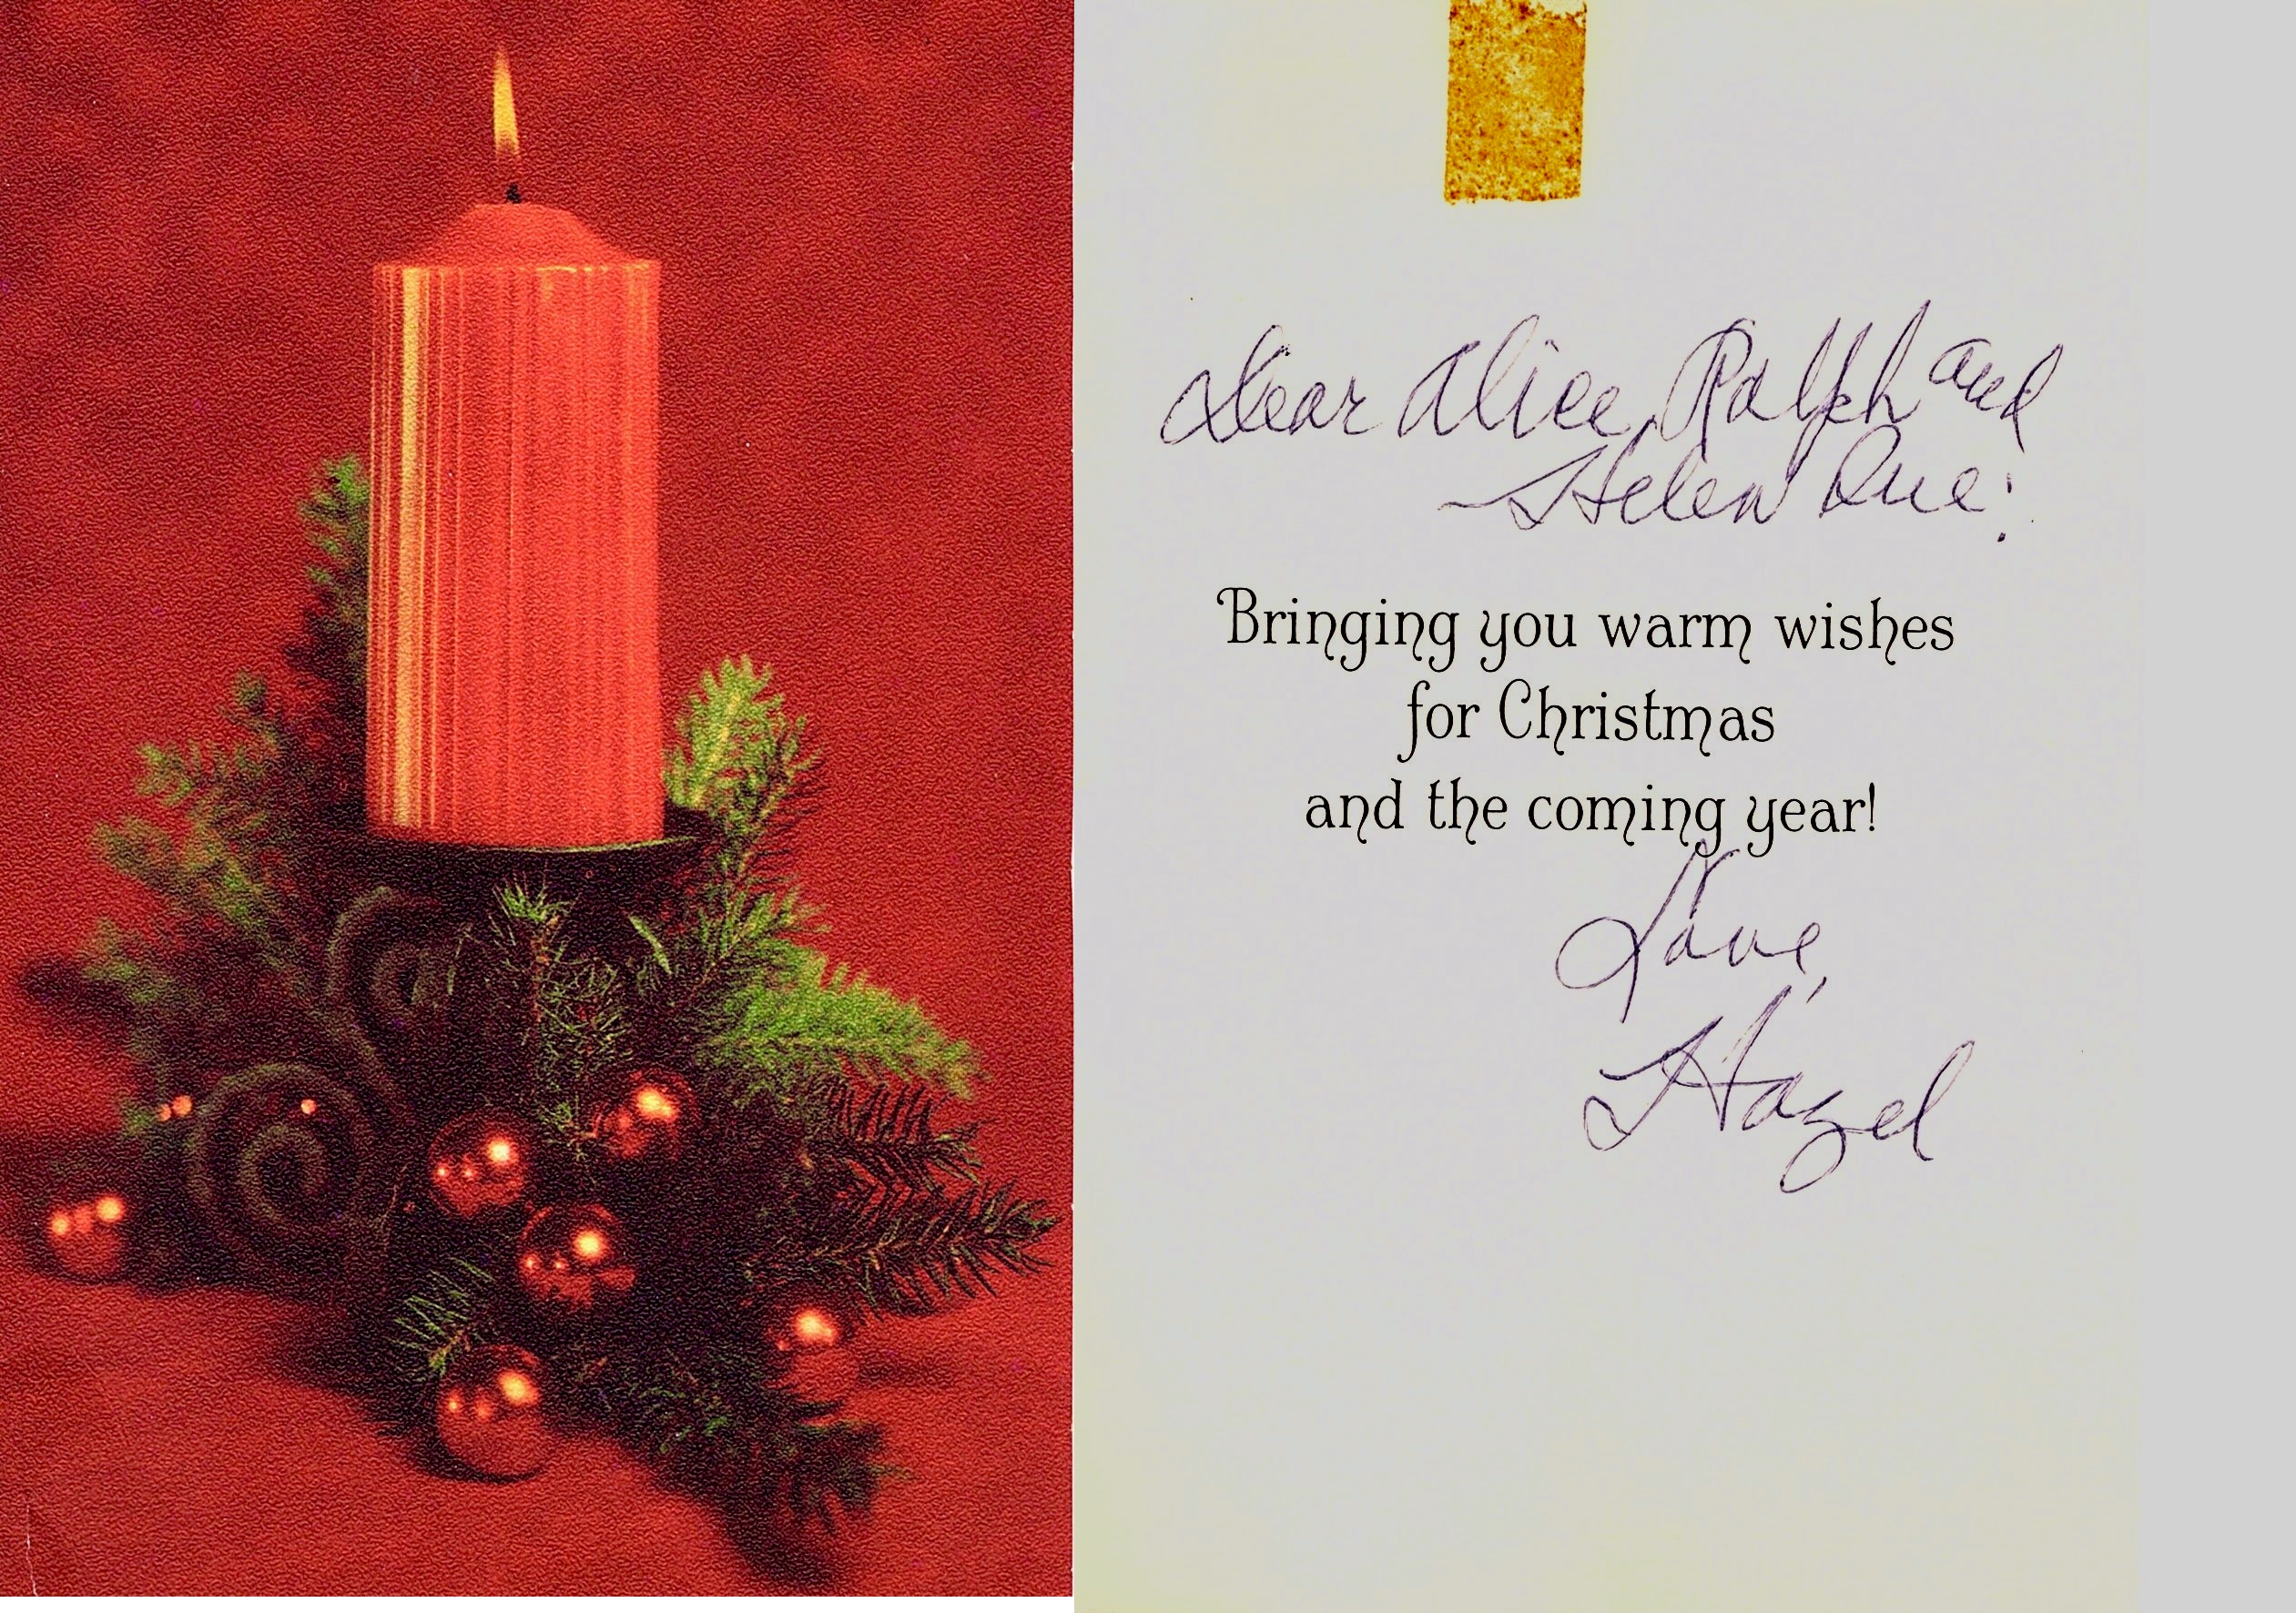 Dear Alice, Ralph and
Helen Sue:
Bringing you warm wishes
for Christmas
and the coming year!
Love,
Hazel